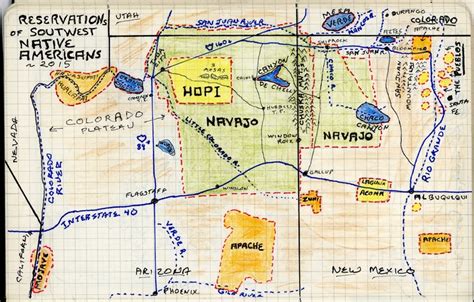 RESERVATIONS
OF SOUTWEST
NATIVE
AMERICANS
~ 2015
UTAH
SAN JUAN RIVER
MESA
VERDE
DURANGO
COLORADO
APACHE
SHIPROCK
SAN JUAN R.
THE PUEBLOS
SANTA FE
HOPI
3 MESAS
NAVAJO
CANYON
DE CHELLY
CHUSKA MTS
CHACO R.
NAVAJO
CHACO
CANYON
COLORADO
PLATEAU
NEVADA
COLORADO RIVER
LITTLE COLORADO R.
WINDOW
ROCK
GALLUP
LAGUNA
ACOMA
ZUNI
RIO GRANDE
ALBUQUERQUE
FLAGSTAFF
WINSLOW
INTERSTATE 40
CALIFORNIA
MOJAVE
VERDE R.
APACHE
APACHE
ARIZONA
NEW MEXICO
PHOENIX
GILA RIVER